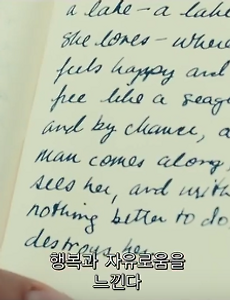 a lake - a lake
she loves - where
feels happy and
free like a seag
and by chance, a
man comes along,
sees her, and with
nothing better to do,
destroys her
행복과 자유로움을
느낀다